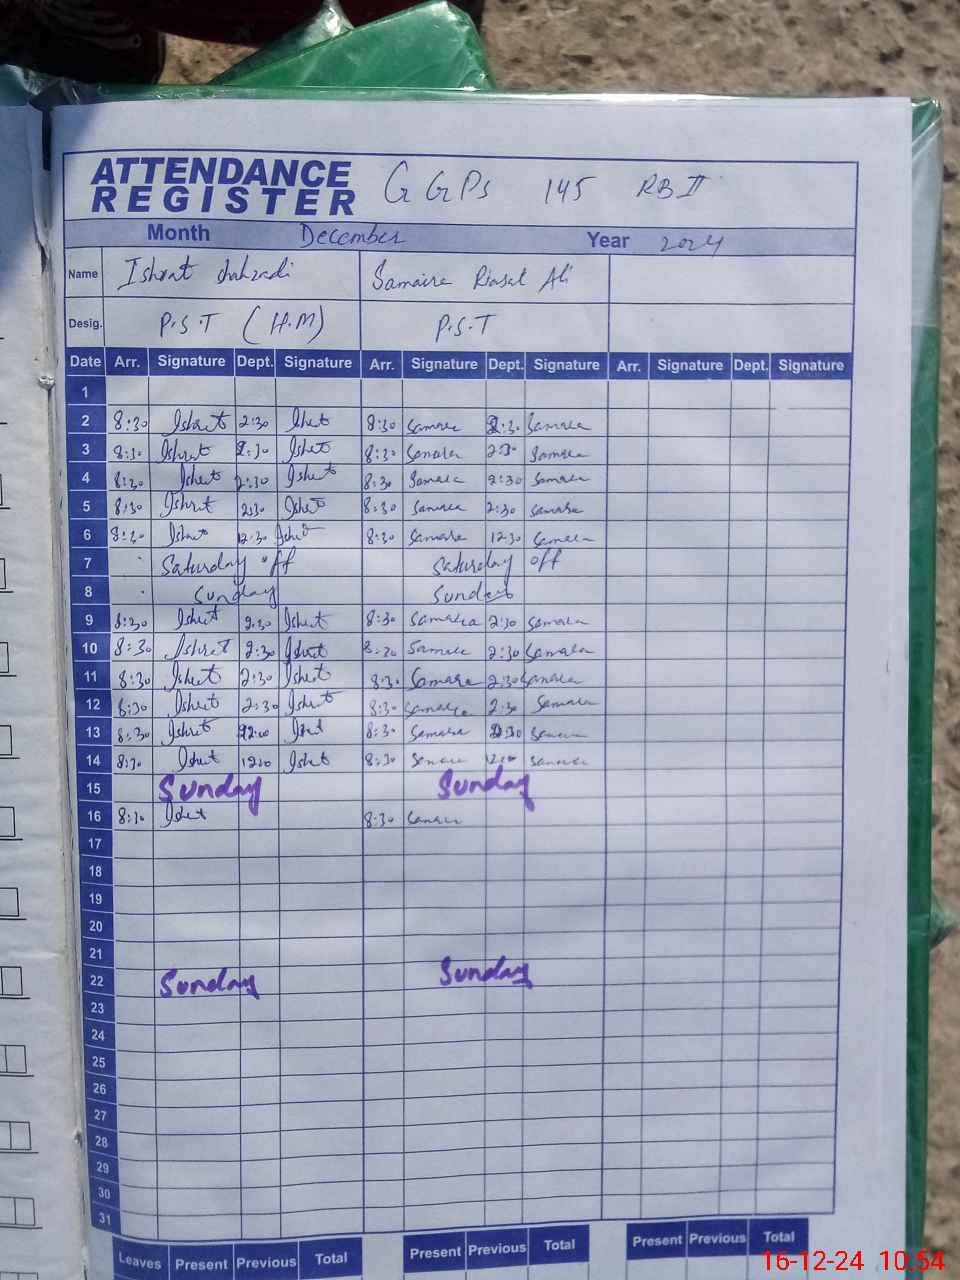 ATTENDANCE REGISTER G GPS 145 RB II
Month December Year 2024
Name Ishrat Samaira Ali
Desig. P.S.T (H.M) P.S.T
Date Arr. Signature Dept. Signature Arr. Signature Dept. Signature Arr. Signature Dept. Signature
1
2 8:30 Ishrat 2:30 Ishrat 8:30 Samara 2:30 Samara
3 8:30 Ishrat 2:30 Ishrat 8:30 Samara 2:30 Samara
4 8:30 Ishrat 2:30 Ishrat 8:30 Samara 2:30 Samara
5 8:30 Ishrat 2:30 Ishrat 8:30 Samara 2:30 Samara
6 8:30 Ishrat 12:30 Ishrat 8:30 Samara 12:30 Samara
7 Saturday off Saturday off
8 Sunday Sunday
9 8:30 Ishrat 2:30 Ishrat 8:30 Samara 2:30 Samara
10 8:30 Ishrat 2:30 Ishrat 8:30 Samara 2:30 Samara
11 8:30 Ishrat 2:30 Ishrat 8:30 Samara 2:30 Samara
12 8:30 Ishrat 2:30 Ishrat 8:30 Samara 2:30 Samara
13 8:30 Ishrat 12:00 Ishrat 8:30 Samara Samara
14 8:30 Ishrat 12:00 Ishrat 8:30 Samara 12:00 Samara
15 Sunday Sunday
16 8:30 Ishrat 8:30 Samara
17
18
19
20
21
22 Sunday Sunday
23
24
25
26
27
28
29
30
31
Leaves Present Previous Total Present Previous Total Present Previous Total
16-12-24 10:54